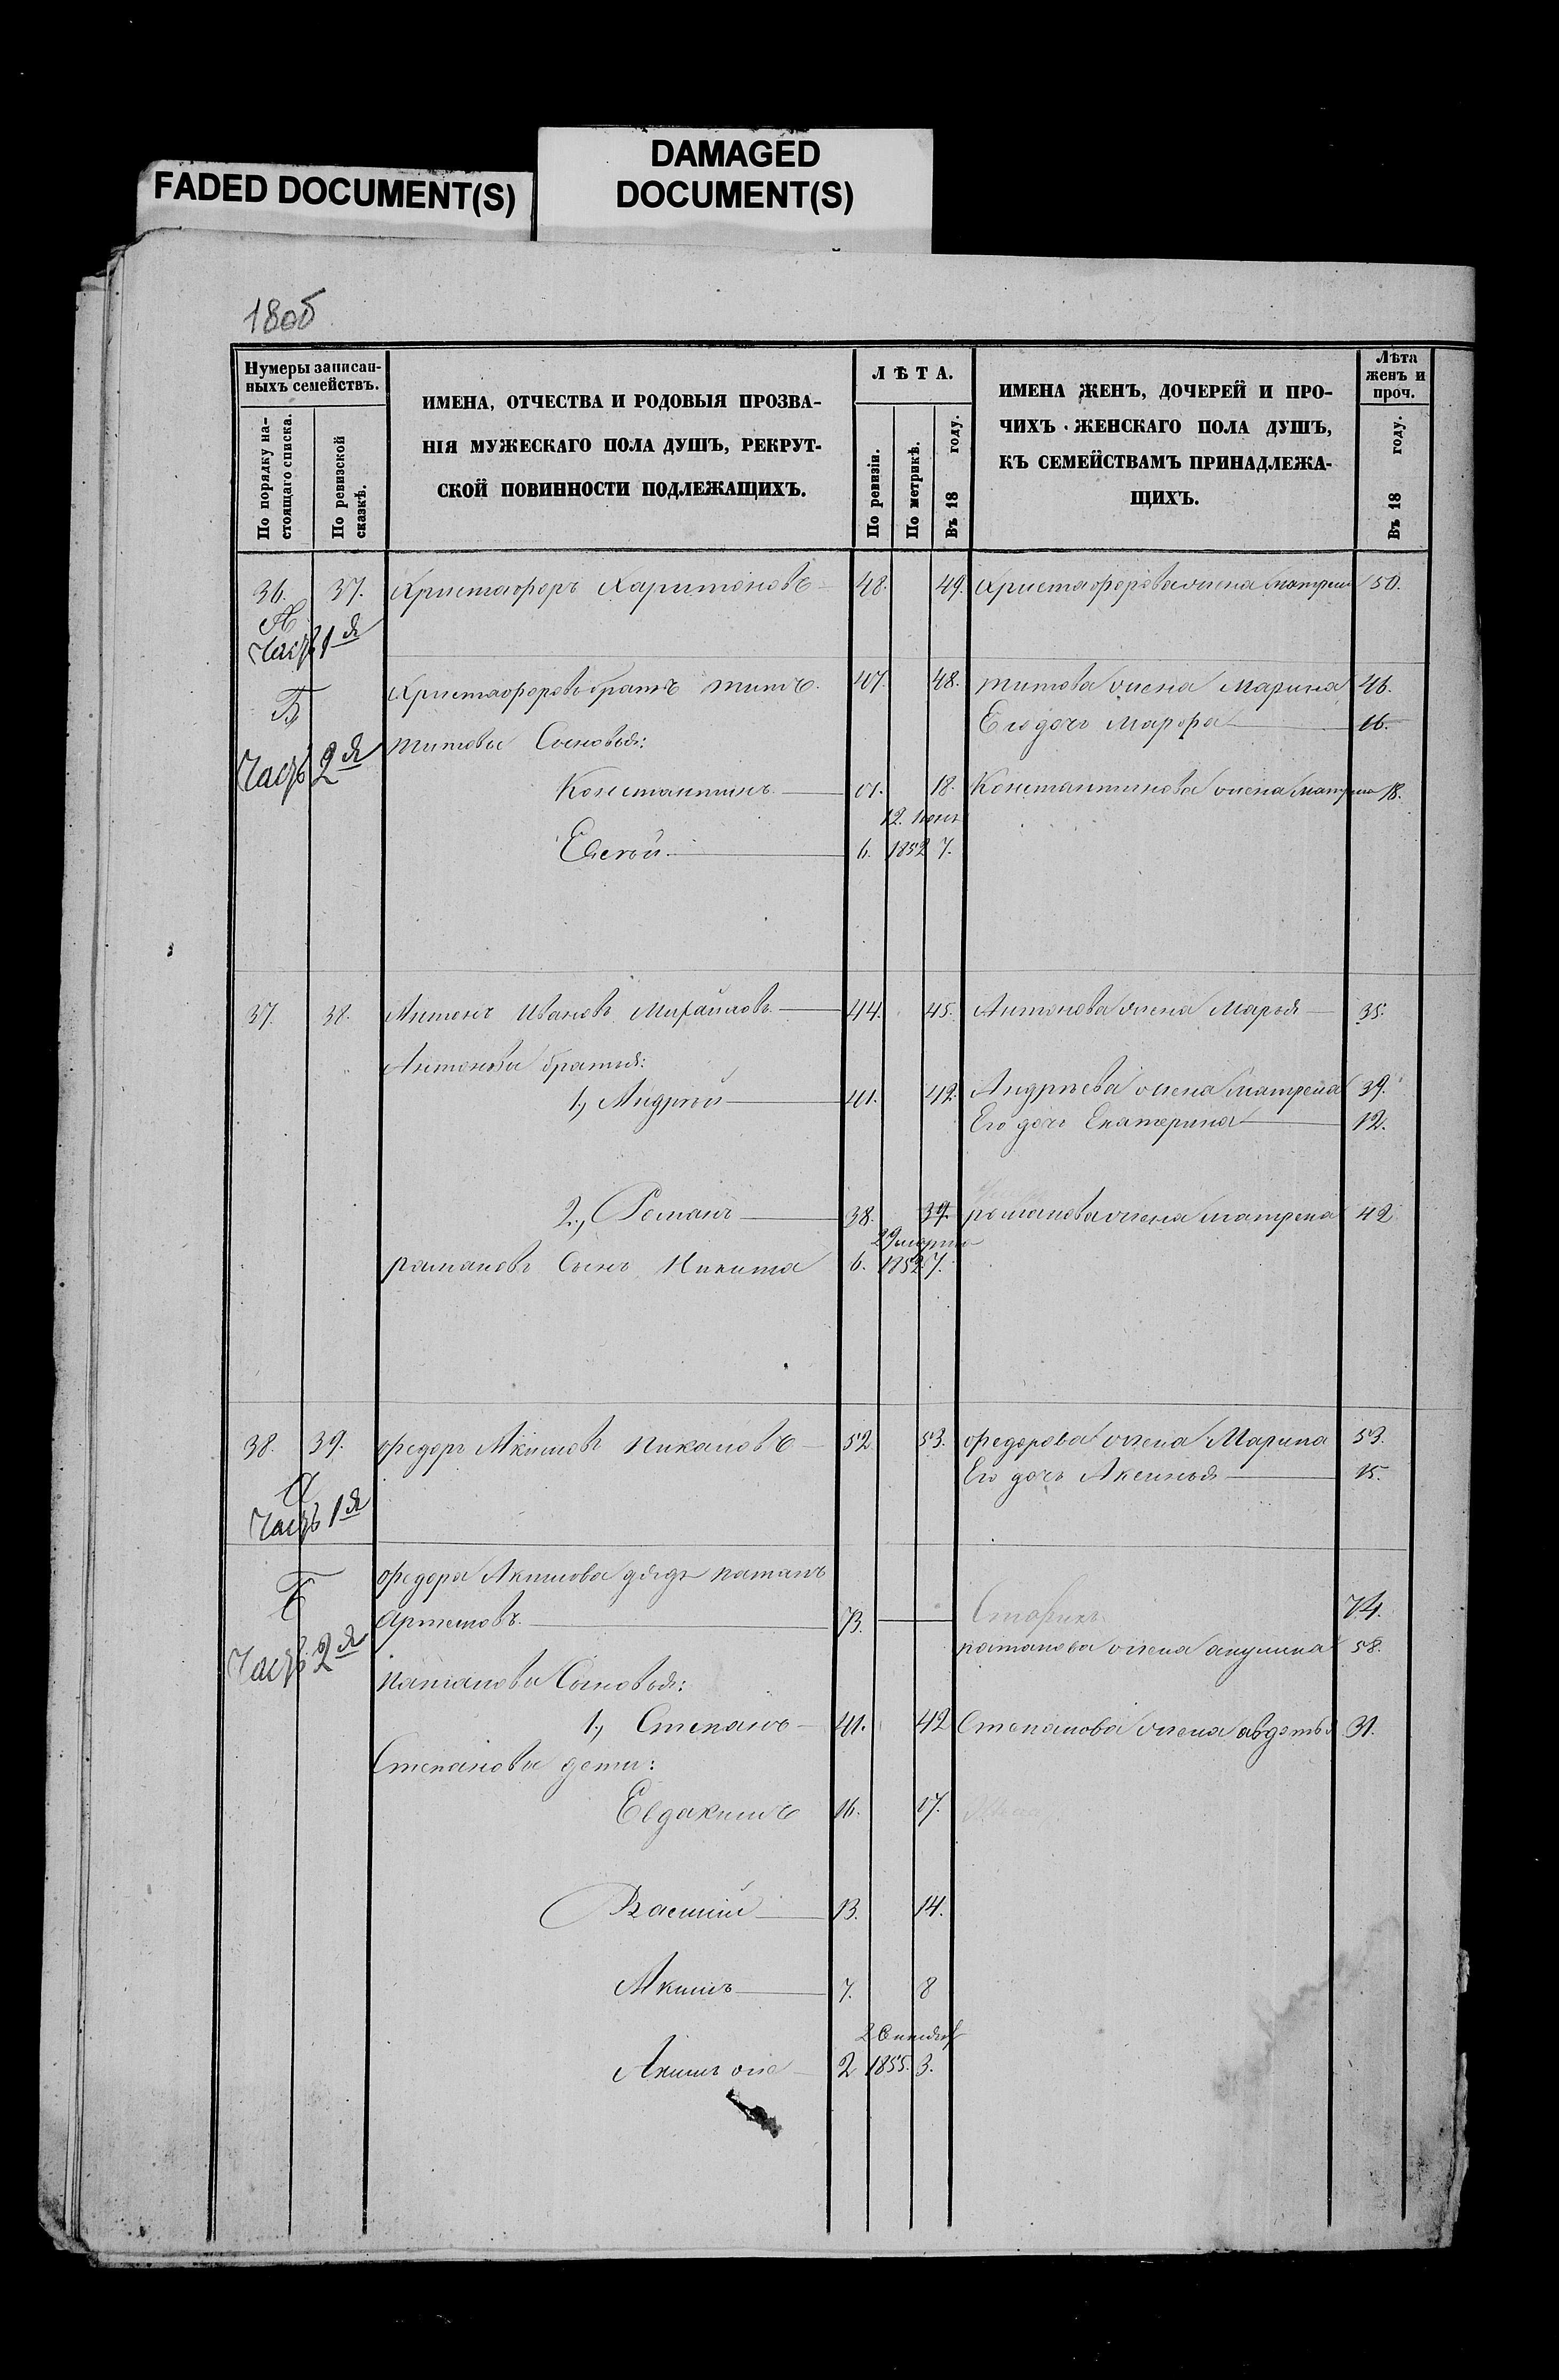 FADED DOCUMENT(S)
DAMAGED
DOCUMENT(S)
180об
Нумеры записан-
ныхъ семействъ.
По порядку на-
стоящаго списка.
По ревизской
сказкѣ.
ИМЕНА, ОТЧЕСТВА И РОДОВЫЯ ПРОЗВА-
НІЯ МУЖЕСКАГО ПОЛА ДУШЪ, РЕКРУТ-
СКОЙ ПОВИННОСТИ ПОДЛЕЖАЩИХЪ.
ЛѢТА.
По ревизіи.
По метрикѣ.
Въ 18 году.
ИМЕНА ЖЕНЪ, ДОЧЕРЕЙ И ПРО-
ЧИХЪ ЖЕНСКАГО ПОЛА ДУШЪ,
КЪ СЕМЕЙСТВАМЪ ПРИНАДЛЕЖА-
ЩИХЪ.
Лѣта
женъ и
проч.
Въ 18 году.
36. 37. Христафоръ Харитоновъ 48. 49. Христафорова жена 50.
А
Часть 1я
Б Христафоровъ братъ титъ. 47. 48. титова жена Марина 46.
Его дочь Марфа 16.
Часть 2я титовы Сыновья:
Константинъ 18. Константинова жена 18.
12. 
6. 1852 7.
37. 38. Антонъ Ивановъ Михайловъ 44. 45. Антонова жена Марья 35.
Антоновы братья:
1, Андрей 41. 42. Андреева жена матрена 39.
Его дочь Екатерина 12.
2, Романъ 38. 39. романова жена матрена 42
29 марта
романовъ Сынъ Никита 6. 1852 7.
38. 39. федоръ Акимовъ 52 53. федорова жена Марина 53.
Его дочь Аксинья 15.
А
Часть 1я
Б федора Акимова дядя патапъ
Артемовъ 73. 74.
патапова жена акулина 58.
Часть 2я патаповы Сыновья:
1, Степанъ 41. 42 Степанова жена авдотья 31.
Степановы дети:
Евдакимъ 16. 17.
Василий 13. 14.
Акимъ 7. 8
2 
Акимъ же 2 1855. 3.